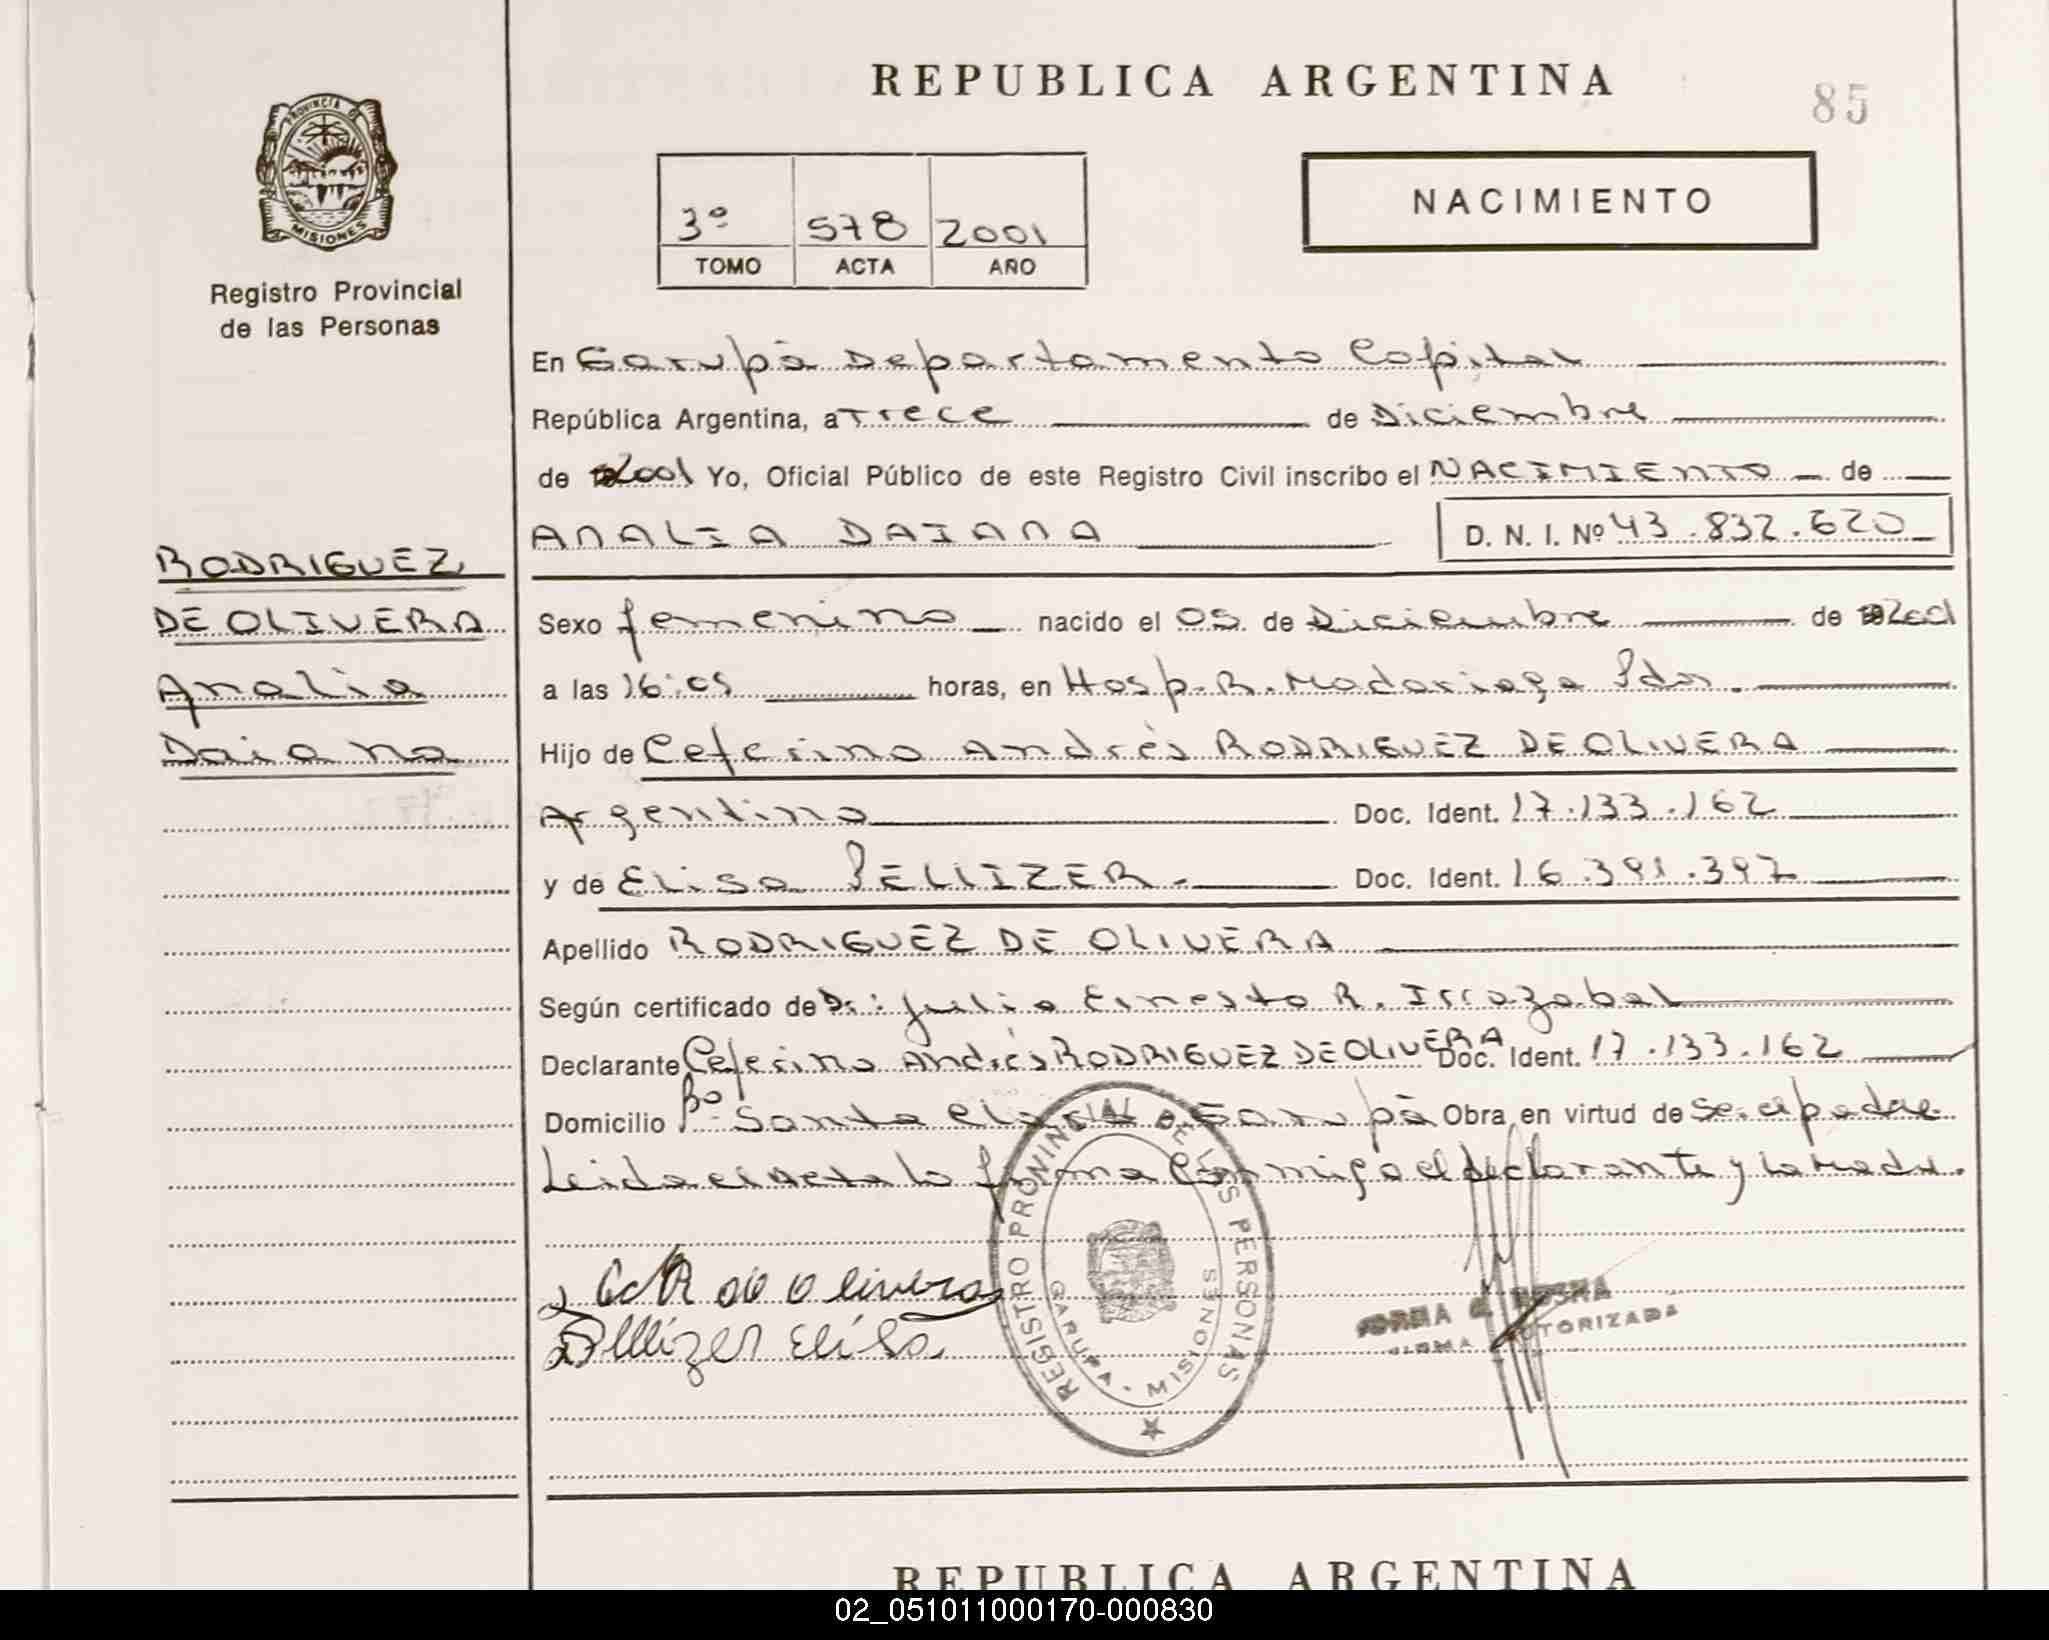 REPUBLICA ARGENTINA
85
PROVINCIA DE
MISIONES
Registro Provincial
de las Personas
3º 578 2001
TOMO ACTA AÑO
NACIMIENTO
En Garupá Departamento Capital
República Argentina, a Trece de Diciembre
de 2001 Yo, Oficial Público de este Registro Civil inscribo el NACIMIENTO de
ANALIA DAIANA D. N. I. Nº 43.832.620
RODRIGUEZ
DE OLIVERA
Analia
Daiana
Sexo femenino nacido el 05 de Diciembre de 2001
a las 16:05 horas, en Hosp. R. Madariaga Pdas.
Hijo de Ceferino Andrés RODRIGUEZ DE OLIVERA
Argentino Doc. Ident. 17.133.162
y de Elisa PELLIZER. Doc. Ident. 16.391.397
Apellido RODRIGUEZ DE OLIVERA
Según certificado de Dr.: Julio Ernesto R. Irrazabal
Declarante Ceferino Andrés RODRIGUEZ DE OLIVERA Doc. Ident. 17.133.162
Domicilio Bº Santa Clara Garupá Obra en virtud de ser el padre
Leida el Acta la firma conmigo el declarante y la Madre.
REGISTRO PROVINCIAL DE LAS PERSONAS
GARUPA - MISIONES
de Olivera
Pellizer Elisa
NORMA
FIRMA AUTORIZADA
REPUBLICA ARGENTINA
02_051011000170-000830